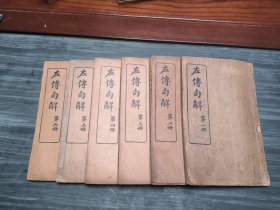 左傳句解
第一冊
左傳句解
第二冊
左傳句解
第三冊
左傳句解
第四冊
左傳句解
第五冊
左傳句解
第六冊